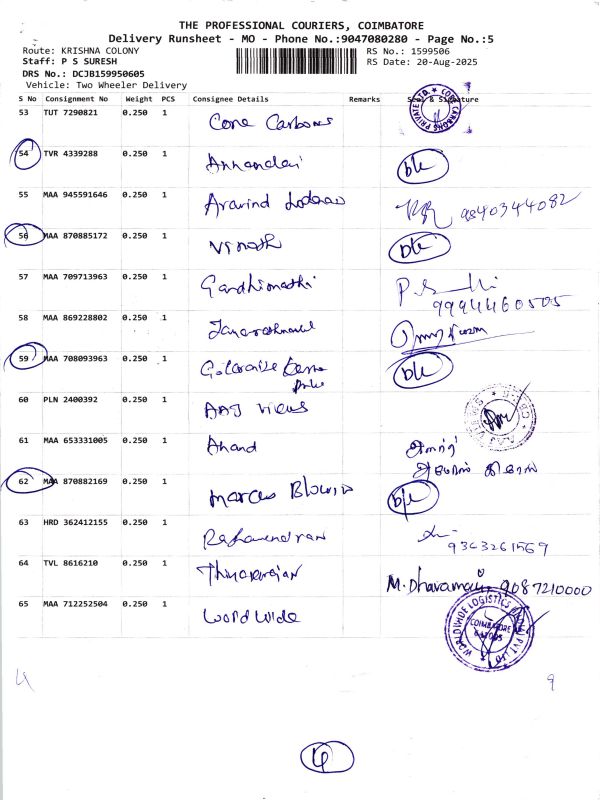 THE PROFESSIONAL COURIERS, COIMBATORE
Delivery Runsheet - MO - Phone No.:9047080280 - Page No.:5
Route: KRISHNA COLONY
RS No.: 1599506
Staff: P S SURESH
RS Date: 20-Aug-2025
DRS No.: DCJB159950605
Vehicle: Two Wheeler Delivery
S No Consignment No Weight PCS Consignee Details Remarks Seal & Signature
53 TUT 7290821 0.250 1 Cone Carbons
54 TVR 4339288 0.250 1 Annandai
55 MAA 945591646 0.250 1 Aravind 9840344082
56 MAA 870885172 0.250 1 Vinoth
57 MAA 709713963 0.250 1 Gandhimathi
9994460505
58 MAA 869228802 0.250 1
59 MAA 708093963 0.250 1
60 PLN 2400392 0.250 1 AAJ Views
61 MAA 653331005 0.250 1 Anand
62 MAA 870882169 0.250 1 Marcus
63 HRD 362412155 0.250 1 Raghavendran
9363261569
64 TVL 8616210 0.250 1 Thiyagarajan M. Dharamaj 9087210000
65 MAA 712252504 0.250 1 World Wide
WORLDWIDE LOGISTICS INDIA PVT LTD
COIMBATORE
4 9
4